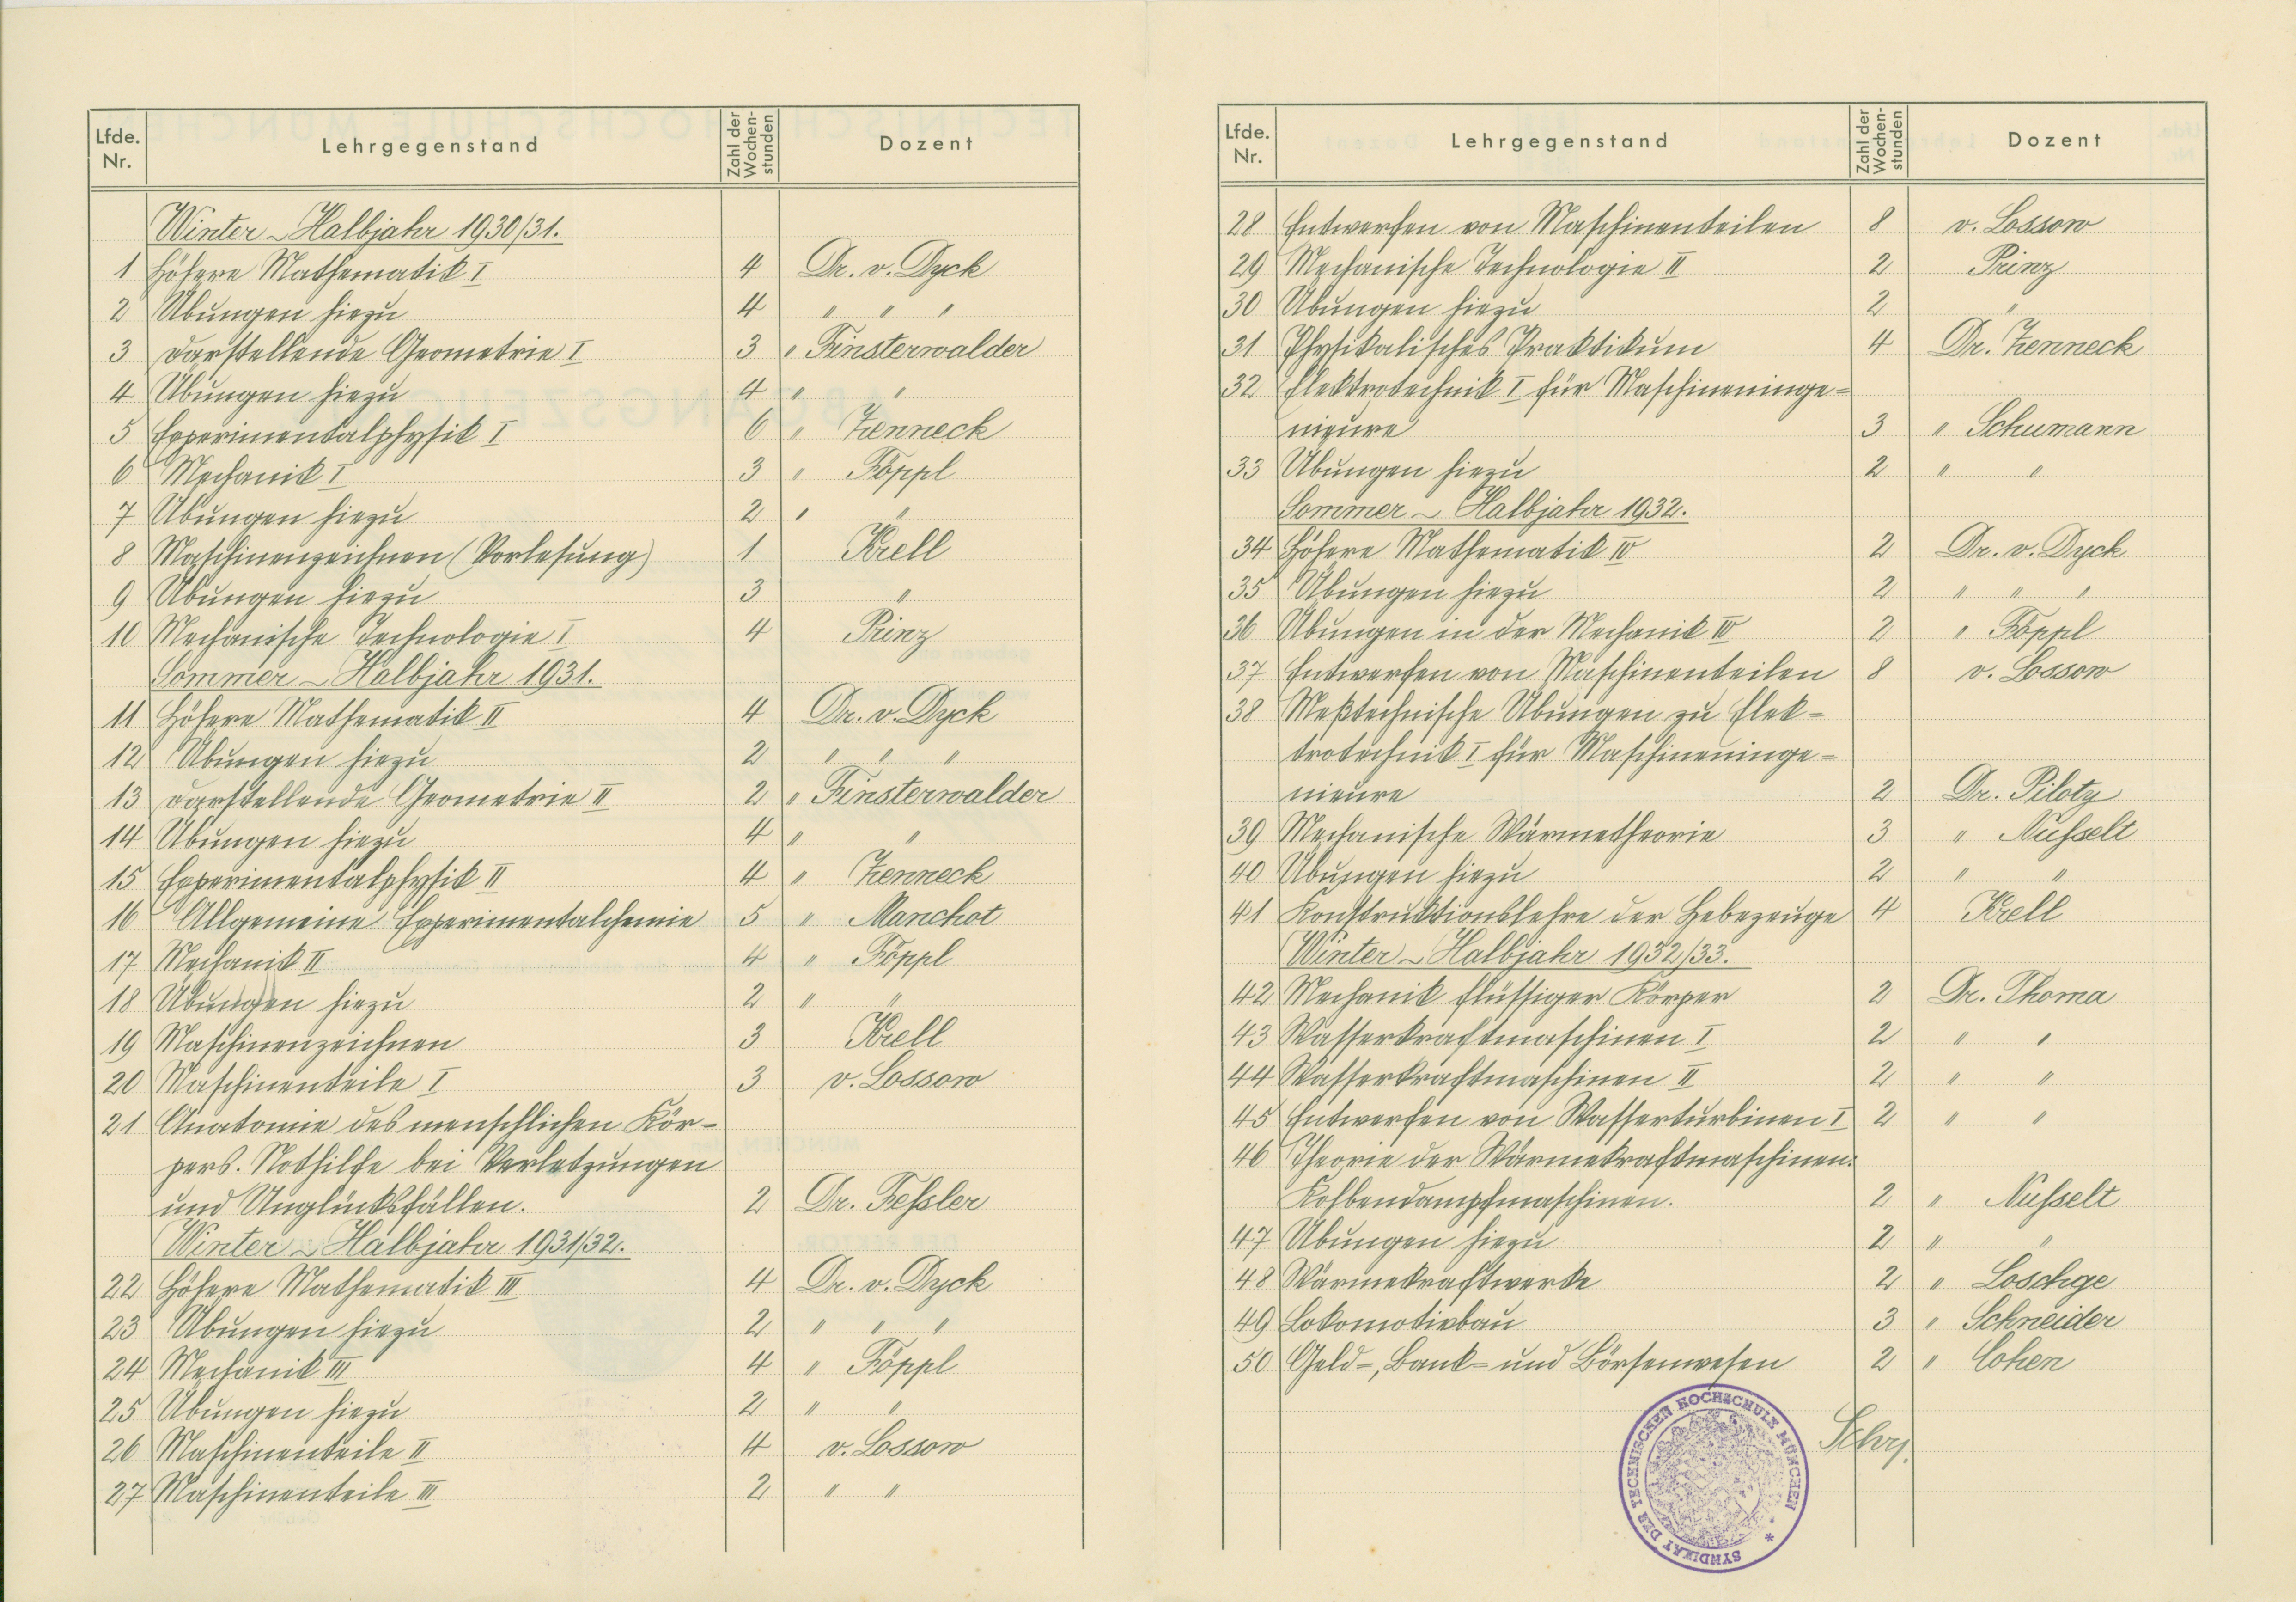 Lfde. Nr. Lehrgegenstand Zahl der Wochen-stunden Dozent
Winter-Halbjahr 1930/31.
1 Höhere Mathematik I 4 Dr. v. Dyck
2 Übungen hiezu 4 " " "
3 darstellende Geometrie I 3 " Finsterwalder
4 Übungen hiezu 4 " "
5 Experimentalphysik I 6 " Zenneck
6 Mechanik I 3 " Föppl
7 Übungen hiezu 2 " "
8 Maschinenzeichnen (Vorlesung) 1 Krell
9 Übungen hiezu 3 "
10 Mechanische Technologie I 4 Prinz
Sommer-Halbjahr 1931.
11 Höhere Mathematik II 4 Dr. v. Dyck
12 Übungen hiezu 2 " " "
13 darstellende Geometrie II 2 " Finsterwalder
14 Übungen hiezu 4 " "
15 Experimentalphysik II 4 " Zenneck
16 Allgemeine Experimentalchemie 5 " Manchot
17 Mechanik II 4 " Föppl
18 Übungen hiezu 2 " "
19 Maschinenzeichnen 3 Krell
20 Maschinenteile I 3 v. Lossow
21 Anatomie des menschlichen Kör-
pers. Nothilfe bei Verletzungen
und Unglücksfällen. 2 Dr. Feßler
Winter-Halbjahr 1931/32.
22 Höhere Mathematik III 4 Dr. v. Dyck
23 Übungen hiezu 2 " " "
24 Mechanik III 4 " Föppl
25 Übungen hiezu 2 " "
26 Maschinenteile II 4 v. Lossow
27 Maschinenteile III 2 " "
Lfde. Nr. Lehrgegenstand Zahl der Wochen-stunden Dozent
28 Entwerfen von Maschinenteilen 8 v. Lossow
29 Mechanische Technologie II 2 Prinz
30 Übungen hiezu 2 "
31 Physikalisches Praktikum 4 Dr. Zenneck
32 Elektrotechnik I für Maschineninge=
nieure 3 " Schumann
33 Übungen hiezu 2 " "
Sommer-Halbjahr 1932.
34 Höhere Mathematik IV 2 Dr. v. Dyck
35 Übungen hiezu 2 " " "
36 Übungen in der Mechanik IV 2 " Föppl
37 Entwerfen von Maschinenteilen 8 v. Lossow
38 Meßtechnische Übungen zu Elek=
trotechnik I für Maschineninge=
nieure 2 Dr. Piloty
39 Mechanische Wärmetheorie 3 " Nußelt
40 Übungen hiezu 2 " "
41 Konstruktionslehre der Hebezeuge 4 Krell
Winter-Halbjahr 1932/33.
42 Mechanik flüssiger Körper 2 Dr. Thoma
43 Wasserkraftmaschinen I 2 " "
44 Wasserkraftmaschinen II 2 " "
45 Entwerfen von Wasserturbinen I 2 " "
46 Theorie der Wärmekraftmaschinen:
Kolbendampfmaschinen. 2 " Nußelt
47 Übungen hiezu 2 " "
48 Wärmekraftwerke 2 " Loschge
49 Lokomotivbau 3 " Schneider
50 Geld-, Bank- und Börsenwesen 2 " Cohen
SYNDIKAT DER TECHNISCHEN HOCHSCHULE MÜNCHEN *